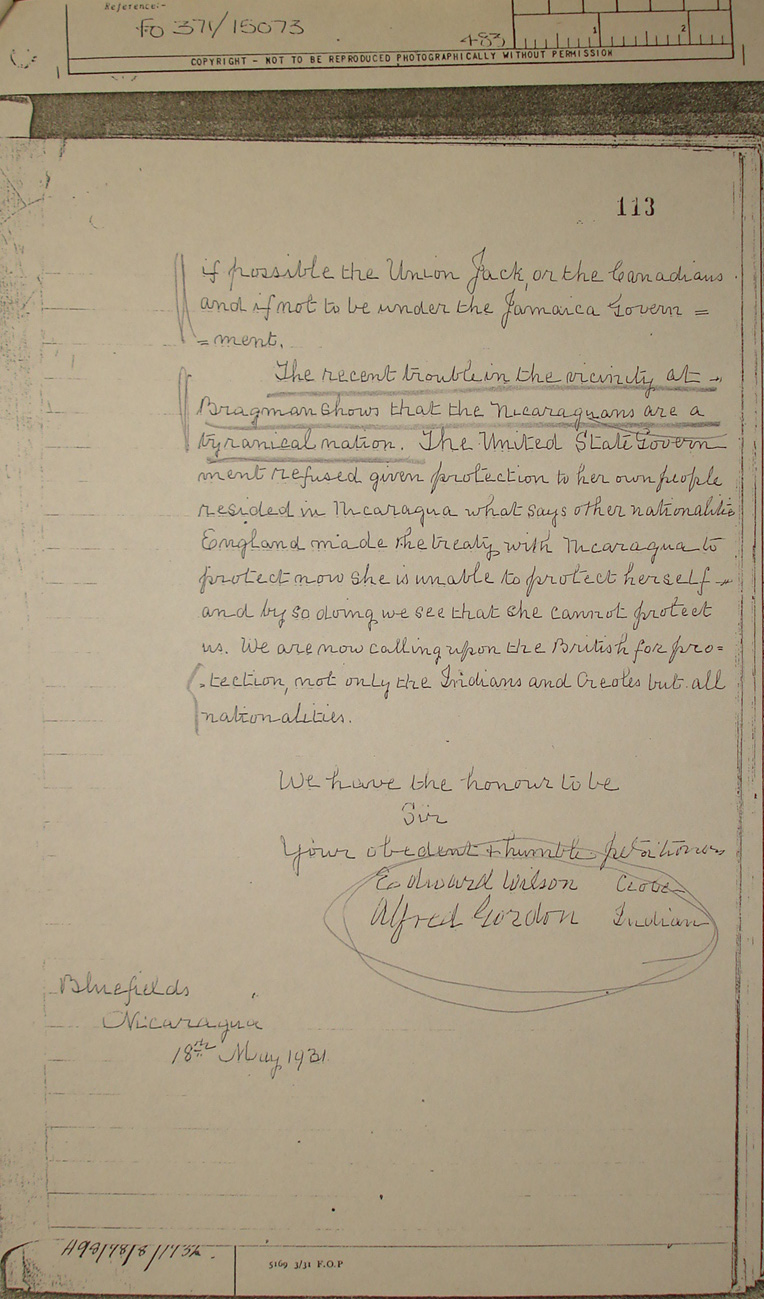 Reference:-
FO 371/15073
483
1 2
COPYRIGHT - NOT TO BE REPRODUCED PHOTOGRAPHICALLY WITHOUT PERMISSION
113
if possible the Union Jack, or the Canadians
and if not to be under the Jamaica Govern =
= ment.
The recent trouble in the vicinity at
Bragman shows that the Nicaraguans are a
tyranical nation. The United State Govern
ment refused given protection to her own people
resided in Nicaragua what says other nationalitie
England made the treaty with Nicaragua to
protect now she is unable to protect herself
and by so doing we see that she cannot protect
us. We are now calling upon the British for pro=
-tection, not only the Indians and Creoles but all
nationalities.
We have the honour to be
Sir
Your obedent + humble petitioners
Edward Wilson
Alfred Gordon Indian
Bluefields
Nicaragua
18th May 1931
5169 3/31 F.O.P